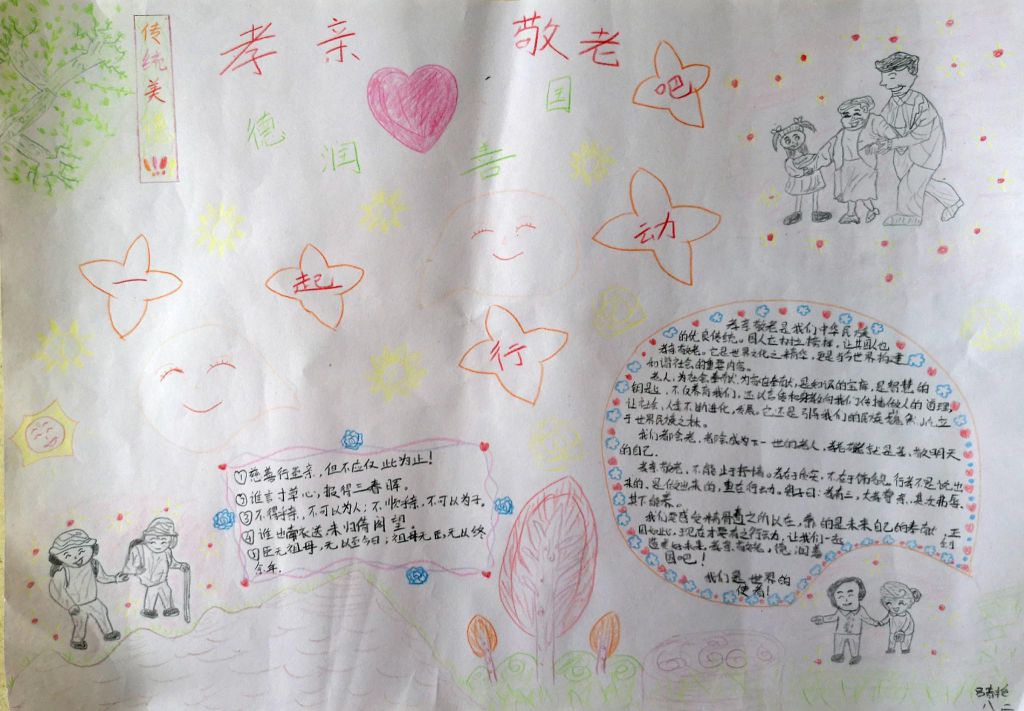 传统美德
孝亲 敬老
德润善国
一起行动吧
①慈善行至亲,但不应仅此为止!
②谁言寸草心,报得三春晖。
③不得乎亲,不可以为人;不顺乎亲,不可以为子。
④谁
未归倚闾望。
⑤臣无祖母,无以至今日;祖母无臣,无以终
余年。
孝亲敬老是我们中华民族
的优良传统。国人
让其国人也
孝亲敬老。它是世界文化之精华,更是当今世界构建
和谐社会的重要内容。
老人,为社会奉献,为家庭奉献,是知识的宝库,是智慧的
钥匙,不仅养育我们,还以言传和身教向我们传播做人的道理,
让社会,人生不断进化,发展。它还是引导我们的民族
立
于世界民族之林。
我们都会老,都会成为下一世的老人,
明天
的自己。
孝亲敬老,不能止于
孝在于质实,不在于饰貌。行孝不是说出
来的,是做出来的,重在行动。
曰:孝有三,大孝尊亲,其次弗辱,
其下能养。
我们应感受精骨
之所以在,
的是未来自己的奉献,
因如此,
让我们一起
未来,孝亲敬老,德润善
国吧!
我们是世界的
使者!
八 二